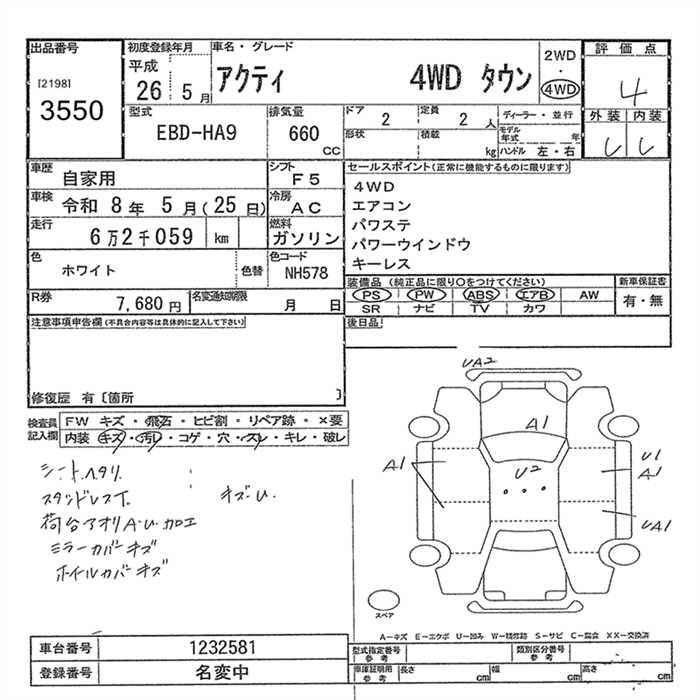 出品番号
[2198]
3550
初度登録年月
平成
26 5月
車名・グレード
アクティ 4WD タウン
2WD
・
4WD
評価点
4
外装 内装
型式
EBD-HA9
排気量
660 CC
ドア
2
定員
2人
形状
積載
kg
ディーラー・並行
モデル年式 年
ハンドル 左・右
車歴
自家用
シフト
F5
車検
令和 8年 5月(25日)
冷房
AC
走行
6万2千059 km
燃料
ガソリン
色
ホワイト
色替
色コード
NH578
R券
7,680円
名変通知期限
月 日
セールスポイント(正常に機能するものに限ります)
4WD
エアコン
パワステ
パワーウインドウ
キーレス
装備品(純正品に限り○をつけてください)
PS PW ABS エアB AW
SR ナビ TV カワ
新車保証書
有・無
後日品
注意事項申告欄(不具合内容等は具体的に記入して下さい)
修復歴 有〔箇所 〕
検査員記入欄
FW キズ・飛石・ヒビ割・リペア跡・×要
内装 キズ・汚レ・コゲ・穴・スレ・キレ・破レ
シートヘタリ
スタッドレスT.
キズ・U.
荷台アオリA・U・加工
ミラーカバーキズ
ホイルカバーキズ
UA2
A1
A1
U2
U1
A1
UA1
スペア
A―キズ E―エクボ U―凹み W―補修跡 S―サビ C―腐食 XX―交換済
車台番号 1232581
登録番号 名変中
型式指定番号
参考
類別区分番号
参考
車庫証明用
参考
長さ cm
幅 cm
高さ cm